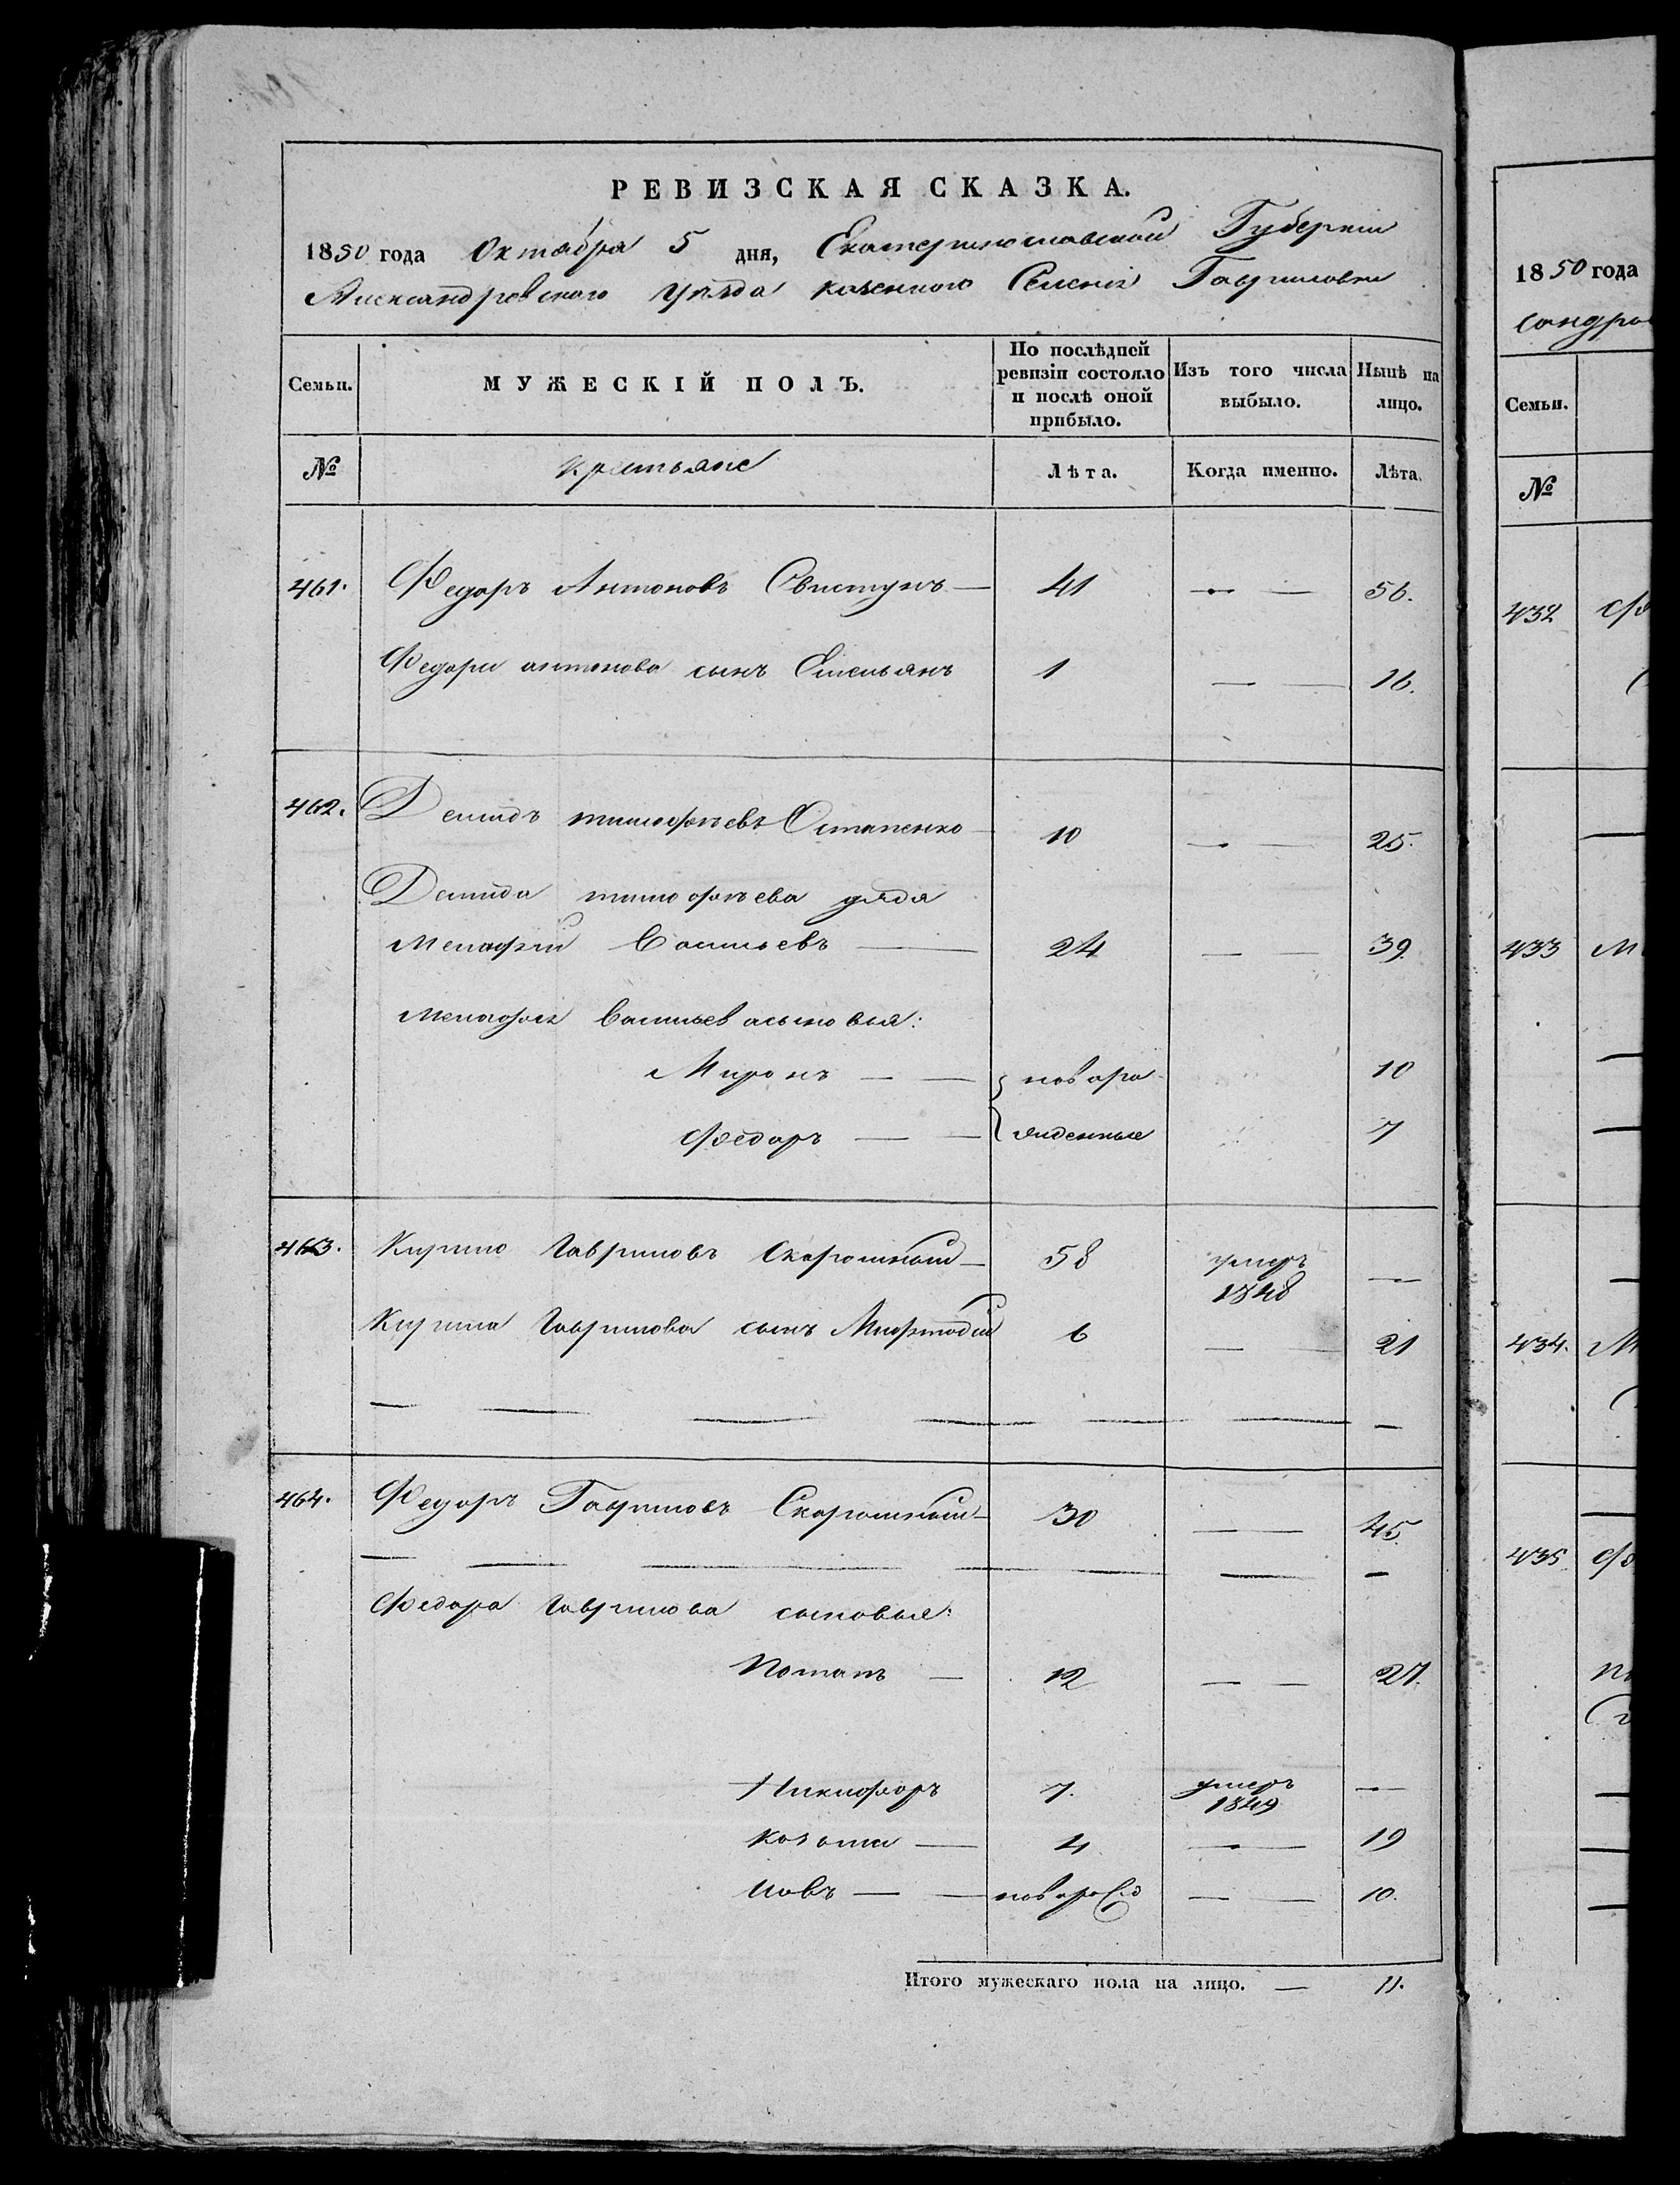 РЕВИЗСКАЯ СКАЗКА.
1850 года Октября 5 дня, Екатеринославской Губерніи
Александровского Уѣзда казенного Селенія Гавриловки
Семьи. МУЖЕСКІЙ ПОЛЪ. По послѣдней ревизіи состояло и послѣ оной прибыло. Изъ того числа выбыло. Нынѣ на лицо.
№ крестьяне Лѣта. Когда именно. Лѣта.
461. Федоръ Антоновъ Свистунъ — 41 — — 56.
Федора антонова сынъ Емельянъ 1 — — 16.
462. Демидъ тимофѣевъ Остапенко 10 — — 25.
Демида тимофѣева дядя
Мелафій Васильевъ — 24 — — 39.
Мелафія Васильева сыновья:
Миронъ — — новоро 10
Федоръ — — жденные 7
463. Кирило Гавриловъ Скоромный — 58 умеръ 1848 —
Кирила Гаврилова сынъ Мефтодій 6 — — 21
464. Федоръ Гавриловъ Скоромный — 30 — — 45.
Федора Гаврилова сыновья:
Потапъ — 12 — — 27.
Никифоръ 7. умеръ 1849 —
Козьма — 4 — — 19
Иовъ — — новорожд — — 10.
Итого мужескаго пола на лицо. — 11.
1850 года
сандров
Семьи.
№
432
433 М
434. М
435